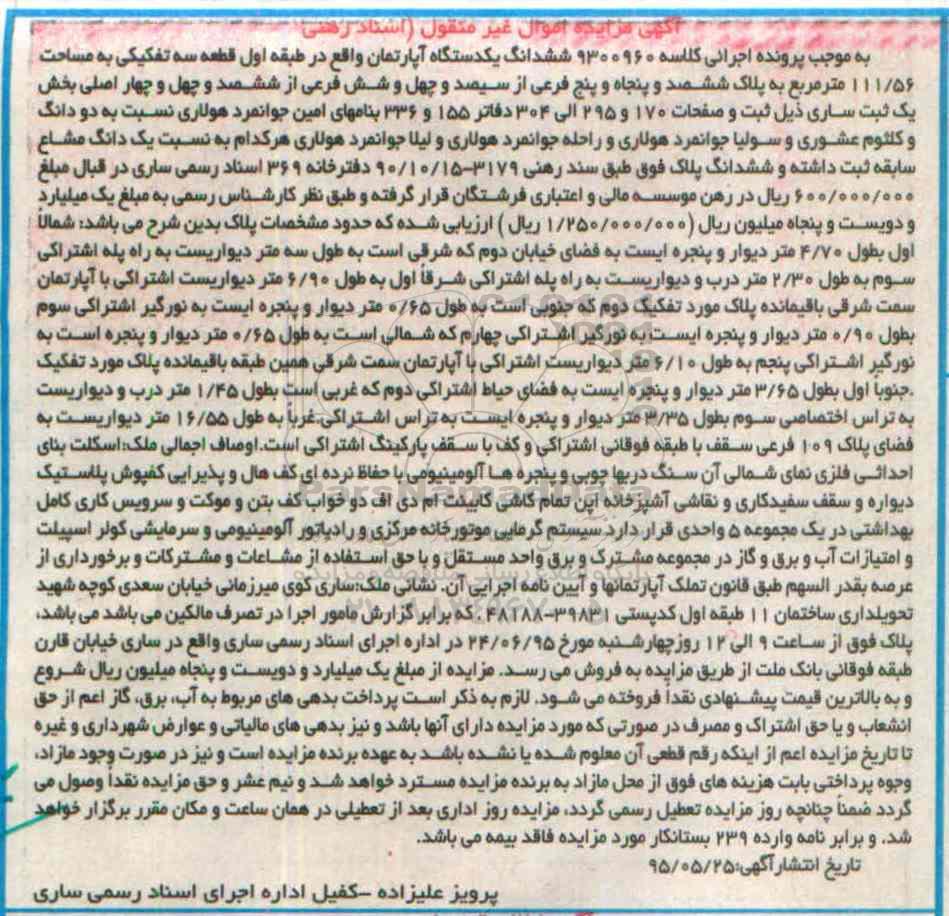 آگهی مزایده اموال غیر منقول (اسناد رهنی)
به موجب پرونده اجرائی کلاسه ۹۳۰۰۹۶۰ ششدانگ یکدستگاه آپارتمان واقع در طبقه اول قطعه سه تفکیکی به مساحت
۱۱۱/۵۶ مترمربع به پلاک ششصد و پنجاه و پنج فرعی از سیصد و چهل و شش فرعی از ششصد و چهل و چهار اصلی بخش
یک ثبت ساری ذیل ثبت و صفحات ۱۷۰ و ۲۹۵ الی ۳۰۴ دفاتر ۱۵۵ و ۳۳۶ بنامهای امین جوانمرد هولاری نسبت به دو دانگ
و کلثوم عشوری و سولیا جوانمرد هولاری و راحله جوانمرد هولاری و لیلا جوانمرد هولاری هرکدام به نسبت یک دانگ مشاع
سابقه ثبت داشته و ششدانگ پلاک فوق طبق سند رهنی ۳۱۷۹–۹۰/۱۰/۱۵ دفترخانه ۳۶۹ اسناد رسمی ساری در قبال مبلغ
۶۰۰/۰۰۰/۰۰۰ ریال در رهن موسسه مالی و اعتباری فرشتگان قرار گرفته و طبق نظر کارشناس رسمی به مبلغ یک میلیارد
و دویست و پنجاه میلیون ریال (۱/۲۵۰/۰۰۰/۰۰۰ ریال) ارزیابی شده که حدود مشخصات پلاک بدین شرح می باشد: شمالا
اول بطول ۴/۷۰ متر دیوار و پنجره ایست به فضای خیابان دوم که شرقی است به طول سه متر دیواریست به راه پله اشتراکی
سوم به طول ۲/۳۰ متر درب و دیواریست به راه پله اشتراکی شرقاً اول به طول ۶/۹۰ متر دیواریست اشتراکی با آپارتمان
سمت شرقی باقیمانده پلاک مورد تفکیک دوم که جنوبی است به طول ۰/۶۵ متر دیوار و پنجره ایست به نورگیر اشتراکی سوم
بطول ۰/۹۰ متر دیوار و پنجره ایست به نورگیر اشتراکی چهارم که شمالی است به طول ۰/۶۵ متر دیوار و پنجره است به
نورگیر اشتراکی پنجم به طول ۶/۱۰ متر دیواریست اشتراکی با آپارتمان سمت شرقی همین طبقه باقیمانده پلاک مورد تفکیک
.جنوبا اول بطول ۳/۶۵ متر دیوار و پنجره ایست به فضای حیاط اشتراکی دوم که غربی است بطول ۱/۴۵ متر درب و دیواریست
به تراس اختصاصی سوم بطول ۳/۳۵ متر دیوار و پنجره ایست به تراس اشتراکی.غرباً به طول ۱۶/۵۵ متر دیواریست به
فضای پلاک ۱۰۹ فرعی سقف با طبقه فوقانی اشتراکی و کف با سقف پارکینگ اشتراکی است.اوصاف اجمالی ملک:اسکلت بنای
احداثی فلزی نمای شمالی آن سنگ دربها چوبی و پنجره ها آلومینیومی با حفاظ نرده ای کف هال و پذیرایی کفپوش پلاستیک
دیواره و سقف سفیدکاری و نقاشی آشپزخانه اپن تمام کاشی کابینت ام دی اف دو خواب کف بتن و موکت و سرویس کاری کامل
بهداشتی در یک مجموعه ۵ واحدی قرار دارد سیستم گرمایی موتورخانه مرکزی و رادیاتور آلومینیومی و سرمایشی کولر اسپیلت
و امتیازات آب و برق و گاز در مجموعه مشترک و برق واحد مستقل و با حق استفاده از مشاعات و مشترکات و برخورداری از
عرصه بقدر السهم طبق قانون تملک آپارتمانها و آیین نامه اجرایی آن. نشانی ملک:ساری کوی میرزمانی خیابان سعدی کوچه شهید
تحویلداری ساختمان ۱۱ طبقه اول کدپستی ۳۹۸۳۱–۴۸۱۸۸ که برابر گزارش مأمور اجرا در تصرف مالکین می باشد می باشد،
پلاک فوق از ساعت ۹ الی ۱۲ روزچهارشنبه مورخ ۲۴/۰۶/۹۵ در اداره اجرای اسناد رسمی ساری واقع در ساری خیابان قارن
طبقه فوقانی بانک ملت از طریق مزایده به فروش می رسد. مزایده از مبلغ یک میلیارد و دویست و پنجاه میلیون ریال شروع
و به بالاترین قیمت پیشنهادی نقداً فروخته می شود. لازم به ذکر است پرداخت بدهی های مربوط به آب، برق، گاز اعم از حق
انشعاب و یا حق اشتراک و مصرف در صورتی که مورد مزایده دارای آنها باشد و نیز بدهی های مالیاتی و عوارض شهرداری و غیره
تا تاریخ مزایده اعم از اینکه رقم قطعی آن معلوم شده یا نشده باشد به عهده برنده مزایده است و نیز در صورت وجود مازاد،
وجوه پرداختی بابت هزینه های فوق از محل مازاد به برنده مزایده مسترد خواهد شد و نیم عشر و حق مزایده نقداً وصول می
گردد ضمناً چنانچه روز مزایده تعطیل رسمی گردد، مزایده روز اداری بعد از تعطیلی در همان ساعت و مکان مقرر برگزار خواهد
شد. و برابر نامه وارده ۲۳۹ بستانکار مورد مزایده فاقد بیمه می باشد.
تاریخ انتشارآگهی:۹۵/۰۵/۲۵
پرویز علیزاده –کفیل اداره اجرای اسناد رسمی ساری